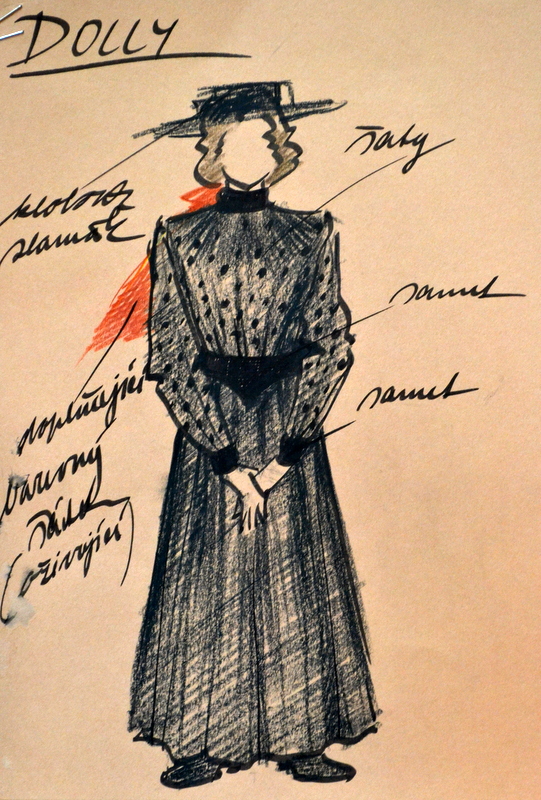 DOLLY
šaty
slamák
samet
samet
doplňující
barevný
šátek
(oživující)